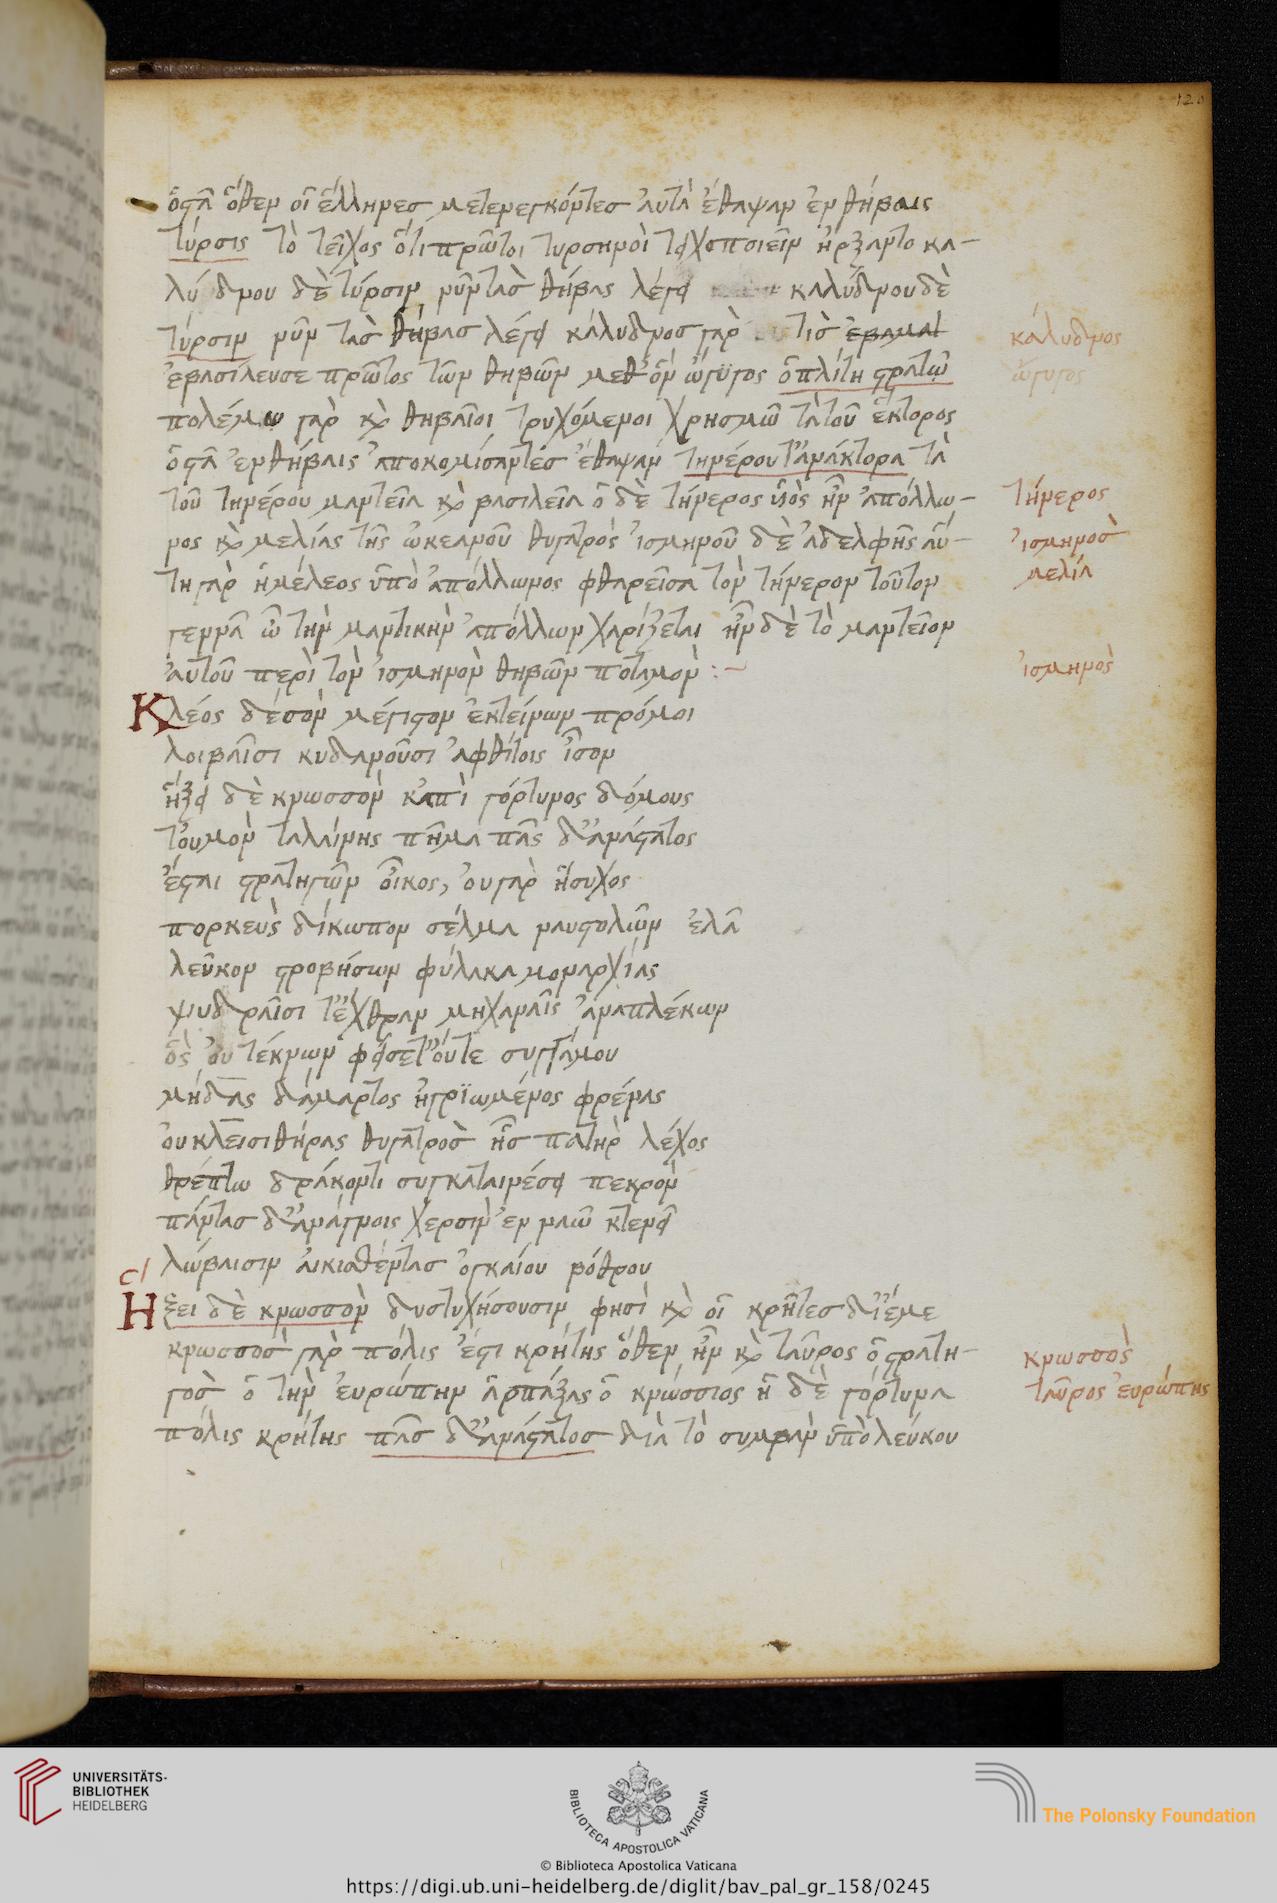 120
ὀστᾶ ὅθεν οἱ ἕλληνες μετενεγκόντες αὐτὰ ἔθαψαν ἐν θήβαις
τύρσις τὸ τεῖχος ὅτι πρῶτοι τυρσηνοὶ τειχοποιεῖν ἤρξαντο κα-
λύδνου δὲ τύρσιν νῦν τὰς θήβας λέγει καλύδνου δὲ
τύρσιν νῦν τὰς θήβας λέγει κάλυδνος γὰρ τις
κάλυδνος
ἐβασίλευσε πρῶτος τῶν θηβῶν μεθ' ὃν ὠγϋγος ὁπλίτη στρατῷ
ὤγυγος
πολέμω γὰρ καὶ θηβαῖοι τρυχόμενοι χρησμῶ τὰ τοῦ ἕκτορος
ὀστᾶ ἐν θήβαις ἀποκομίσαντες ἔθαψαν τηνέρου τ' ἀνάκτορα τὰ
τοῦ τηνέρου μαντεῖα καὶ βασιλεῖα ὁ δὲ τήνερος υἱὸς ἦν ἀπόλλω-
τήνερος
νος καὶ μελίας τῆς ὠκεανοῦ θυγατρὸς ἰσμηνοῦ δὲ ἀδελφῆς αὕ-
ἰσμηνὸς
τη γὰρ ἡ μέλεος ὑπὸ ἀπόλλωνος φθαρεῖσα τὸν τήνερον τοῦτον
μελία
γεννᾶ ὧ τὴν μαντικὴν ἀπόλλων χαρίζεται ἦν δὲ τὸ μαντεῖον
αὐτοῦ περὶ τὸν ἰσμηνὸν θηβῶν ποταμὸν :~
ἰσμηνὸς
Κλέος δέσὸν μέγιστον ἐκτείνων πρόμοι
λοιβαῖσι κυδανοῦσι ἀφθίτοις ἶσον
ἥξει δὲ κνωσσὸν κἀπὶ γόρτυνος δόμους
τοὐμὸν ταλαίνης πῆμα πᾶς δ' ἀνάστατος
ἔσται στρατηγῶν οἶκος, οὐ γὰρ ἥσυχος
πορκεὺς δίκωπον σέλμα ναυστολῶν ἐλᾶ
λεῦκον στροβήσων φύλακα μοναρχίας
ψυδραῖσι τ' ἔχθραν μηχαναῖς ἀναπλέκων
ὃς οὐ τέκνων φείσετ' οὔτε συγγάμου
μήδας δάμαρτος ἠγρϊωμένος φρένας
οὐ κλεισιθήρας θυγατρὸς ἧς πατὴρ λέχος
θρέπτω δράκοντι συγκαταινέσει πεκρὸν
πάντας δ' ἀνάγνοις χερσὶν ἐν ναῶ κτενεῖ
λώβαισιν αἰκισθέντας ὀγκαίου βόθρου
Ηξει δὲ κνωσσὸν δυστυχήσουσιν φησὶ καὶ οἱ κρῆτες δι' ἐμε
κνωσσὸς γὰρ πόλις ἐστι κρήτης ὅθεν ἦν καὶ ταῦρος ὁ στρατη-
κνωσσὸς
γὸς ὁ τὴν εὐρώπην ἁρπάξας ὁ κνώσσιος ἡ δὲ γόρτυνα
ταῦρος εὐρώπης
πόλις κρήτης πᾶς δ' ἀνάστατος διὰ τὸ συμβὰν ὑπὸ λεύκου
UNIVERSITÄTS-
BIBLIOTHEK
HEIDELBERG
BIBLIOTECA APOSTOLICA VATICANA
The Polonsky Foundation
© Biblioteca Apostolica Vaticana
https://digi.ub.uni-heidelberg.de/diglit/bav_pal_gr_158/0245